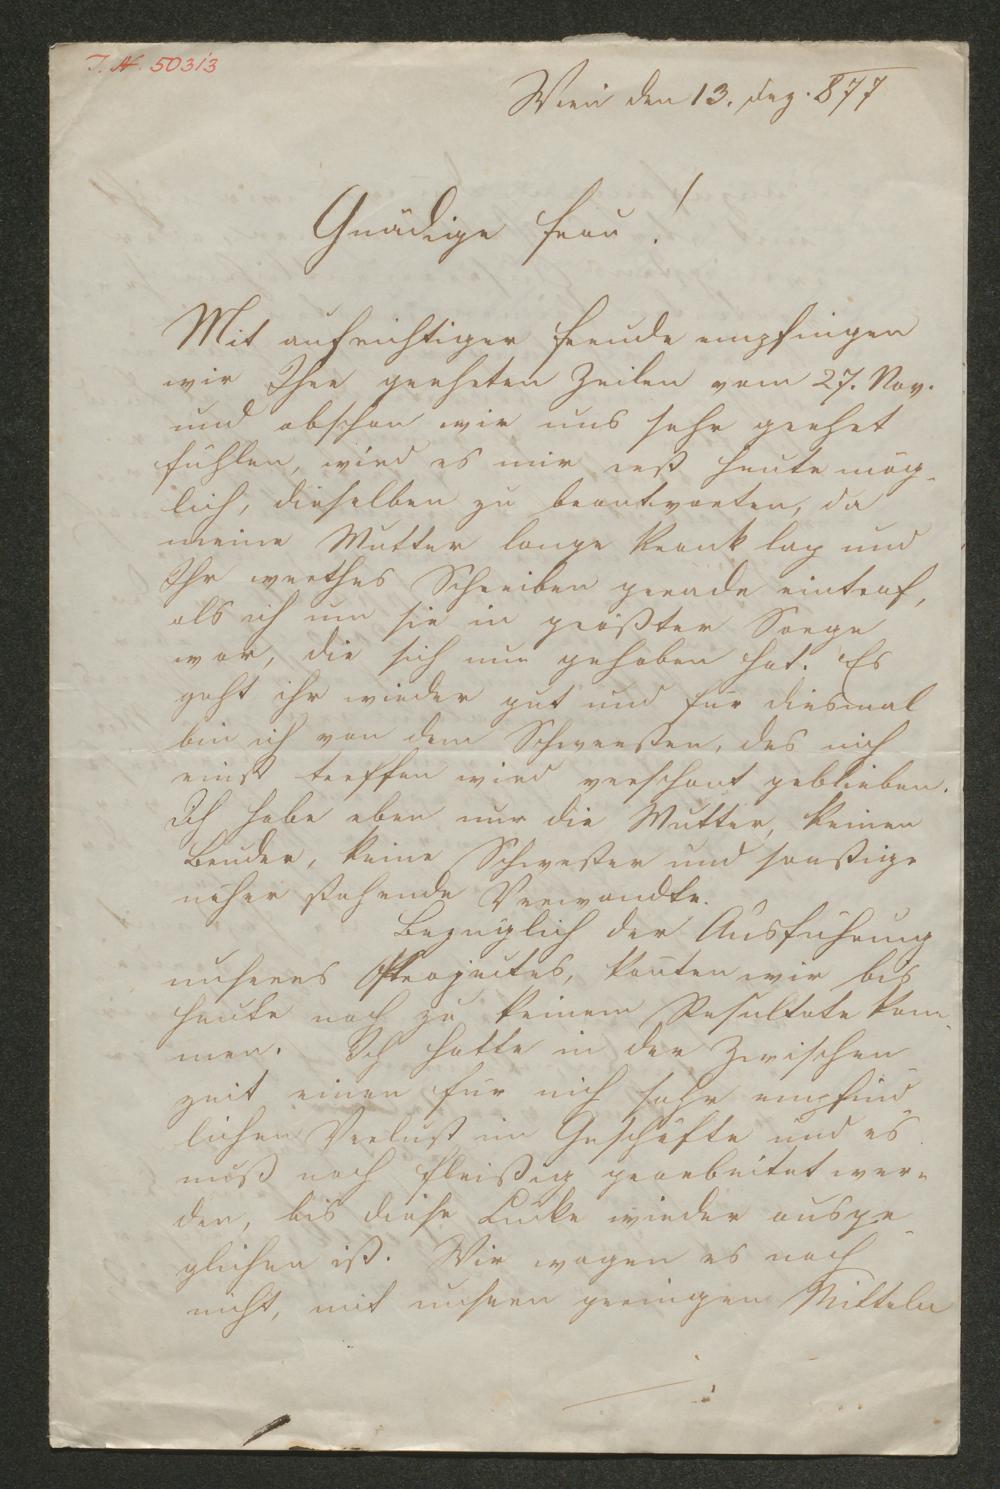 I. N. 50313
Wien den 13. Dez. 877
Gnädige Frau!
Mit aufrichtiger Freude empfingen
wir Ihre geehrten Zeilen vom 27. Nov.
und obschon wir uns sehr geehrt
fühlen, wird es mir erst heute mög-
lich, dieselben zu beantworten, da
meine Mutter lange krank lag und
Ihr werthes Schreiben gerade eintraf,
als ich um sie in größter Sorge
war, die sich nun gehoben hat. Es
geht ihr wieder gut und für diesmal
bin ich von dem Schwersten, das mich
einst treffen wird verschont geblieben.
Ich habe eben nur die Mutter, keinen
Bruder, keine Schwester und sonstige
näher stehende Verwandte.
Bezüglich der Ausführung
unseres Projectes, konten wir bis
heute noch zu keinem Resultate kom-
men. Ich hatte in der Zwischen
zeit einen für mich sehr empfind-
lichen Verlust im Geschäfte und es
muß noch fleißig gearbeitet wer-
den, bis diese Lücke wieder ausge-
glichen ist. Wir wagen es noch
nicht, mit unseren geringen Mitteln